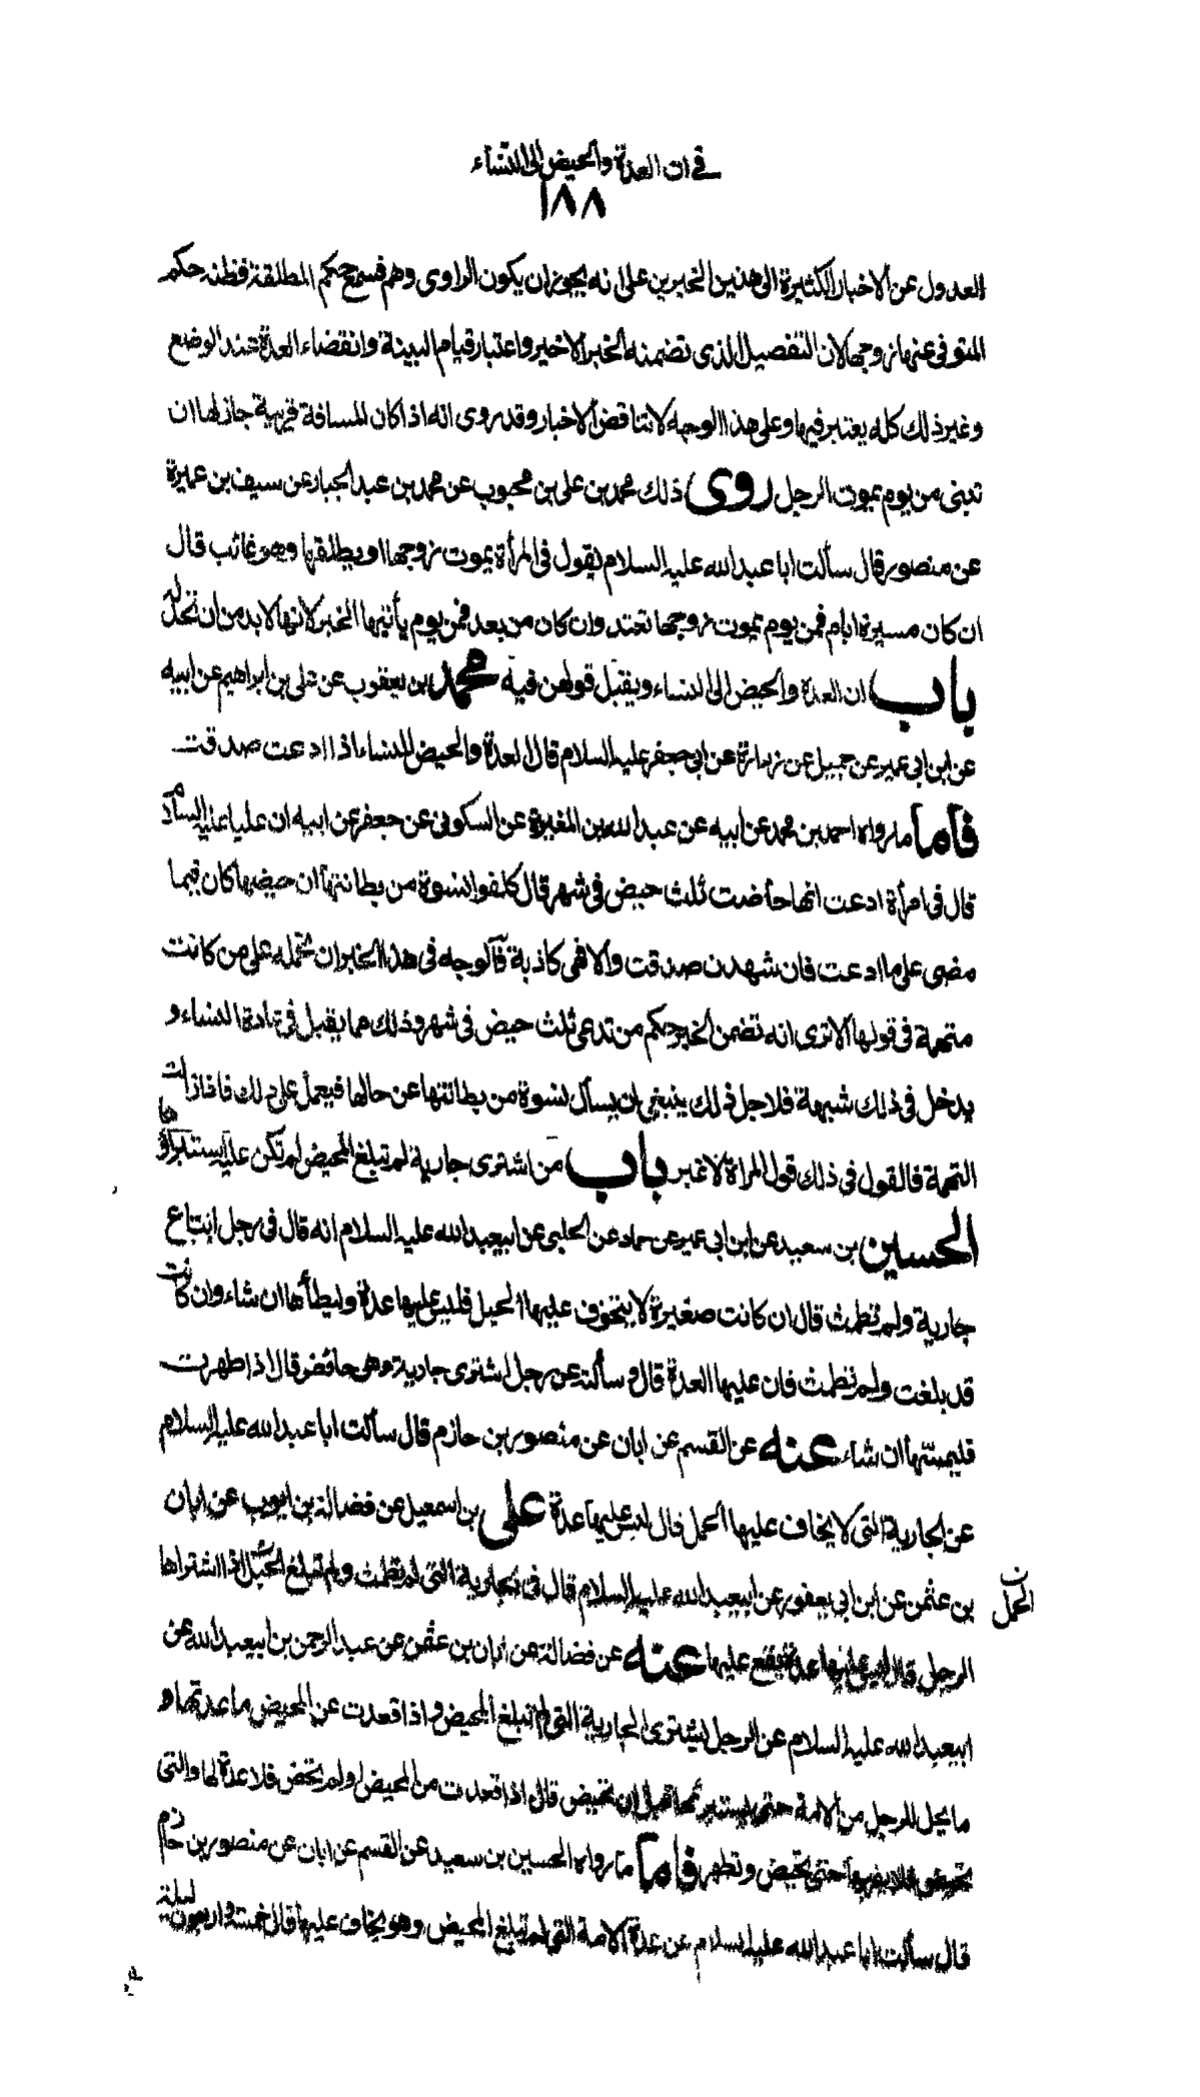 في ان العدة والحيض الى النساء
١٨٨
العدول عن الاخبار الكثيرة الى هذين الخبرين على انه يجوز ان يكون الراوى وهم فسمع حكم المطلقة فظنه حكم
المتوفى عنها زوجها لان التفصيل الذى تضمنه الخبر الاخير واعتبار قيام البينة وانقضاء العدة عند الوضع
وغير ذلك كله يعتبر فيها وعلى هذا الوجه لا تتناقض الاخبار وقد روى انه اذا كان المسافة قريبة جاز لها ان
تبنى من يوم يموت الرجل روى ذلك محمد بن على بن محبوب عن محمد بن عبد الجبار عن سيف بن عميرة
عن منصور قال سألت ابا عبد الله عليه السلام يقول فى المرأة يموت زوجها او يطلقها وهو غائب قال
ان كان مسيرة ايام فمن يوم يموت زوجها تعتد وان كان من بعد فمن يوم يأتيها الخبر لانها لابد من ان تحد له
باب ان العدة والحيض الى النساء ويقبل قولهن فيه محمد بن يعقوب عن على بن ابراهيم عن ابيه
عن ابن ابى عمير عن جميل عن زرارة عن ابى جعفر عليه السلام قال العدة والحيض للنساء اذا ادعت صدقت
فاما ما رواه احمد بن محمد عن ابيه عن عبد الله بن المغيرة عن السكونى عن جعفر عن ابيه ان عليا عليه السلام
قال فى امرأة ادعت انها حاضت ثلث حيض فى شهر قال كلفوا نسوة من بطانتها ان حيضها كان فيما
مضى على ما ادعت فان شهدن صدقت والا فهى كاذبة فالوجه فى هذا الخبر ان نحمله على من كانت
متهمة فى قولها الا ترى انه تضمن الخبر حكم من تدعى ثلث حيض فى شهر وذلك مما يقبل فى عادة النساء و
يدخل فى ذلك شبهة فلاجل ذلك ينبغى ان يسأل نسوة من بطانتها عن حالها فيعمل على ذلك فاذا زالت
التهمة فالقول فى ذلك قول المراة لا غير باب من اشترى جارية لم تبلغ المحيض لم تكن عليه استبراؤها
الحسين بن سعيد عن ابن ابى عمير عن حماد عن الحلبى عن ابيعبد الله عليه السلام انه قال فى رجل ابتاع
جارية ولم تطمث قال ان كانت صغيرة لا يتخوف عليها الحبل فليس عليها عدة وليطأها ان شاء وان كانت
قد بلغت ولم تطمث فان عليها العدة قال وسألته عن رجل اشترى جارية وهى حائض قال اذا طهرت
فليمسها ان شاء عنه عن القسم عن ابان عن منصور بن حازم قال سألت ابا عبد الله عليه السلام
عن الجارية التى لا يخاف عليها الحمل قال ليس عليها عدة على بن اسمعيل عن فضالة بن ايوب عن ابان
بن عثمن عن ابن ابى يعفور عن ابيعبد الله عليه السلام قال فى الجارية التى لم تطمث ولم تبلغ الحبل اذا اشتراها
الحمل ن
الرجل قال ليس عليها عدة يقع عليها عنه عن فضالة عن ابان بن عثمن عن عبد الرحمن بن ابيعبد الله عن
ابيعبد الله عليه السلام عن الرجل يشترى الجارية التى لم تبلغ المحيض واذا قعدت عن المحيض ما عدتها و
ما يحل للرجل من الامة حتى يستبرئها قبل ان تحيض قال اذا قعدت من المحيض او لم تحض فلا عدة لها والتى
تحيض فلا يقربها حتى تحيض وتطهر فاما ما رواه الحسين بن سعيد عن القسم عن ابان عن منصور بن حازم
قال سألت ابا عبد الله عليه السلام عن عدة الامة التى لم تبلغ المحيض وهو يخاف عليها قال خمسة واربعون ليلة